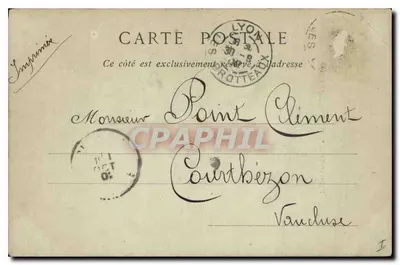 CARTE POSTALE
Ce côté est exclusivement réservé à l'adresse
Imprimée
LYON
BROTTEAUX
Monsieur Point Clément
CPAPHIL
Courthézon
Vaucluse